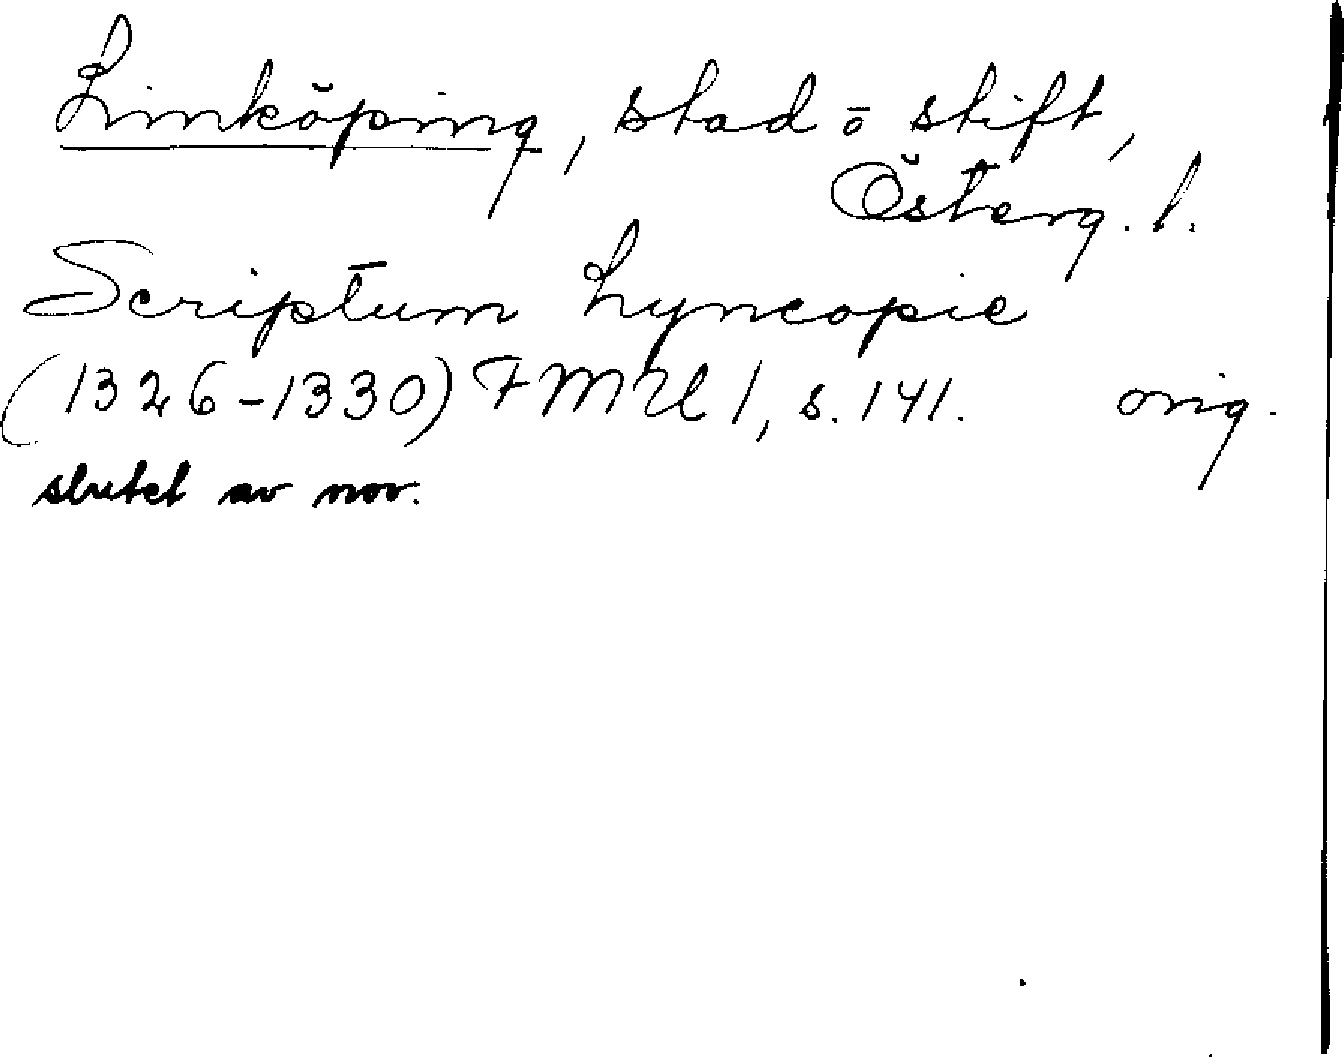 Linköping, stad o stift,
Österg. l.
Scriptum Lyncopie
(1326-1330) FMU 1, s. 141. orig.
slutet av nov.